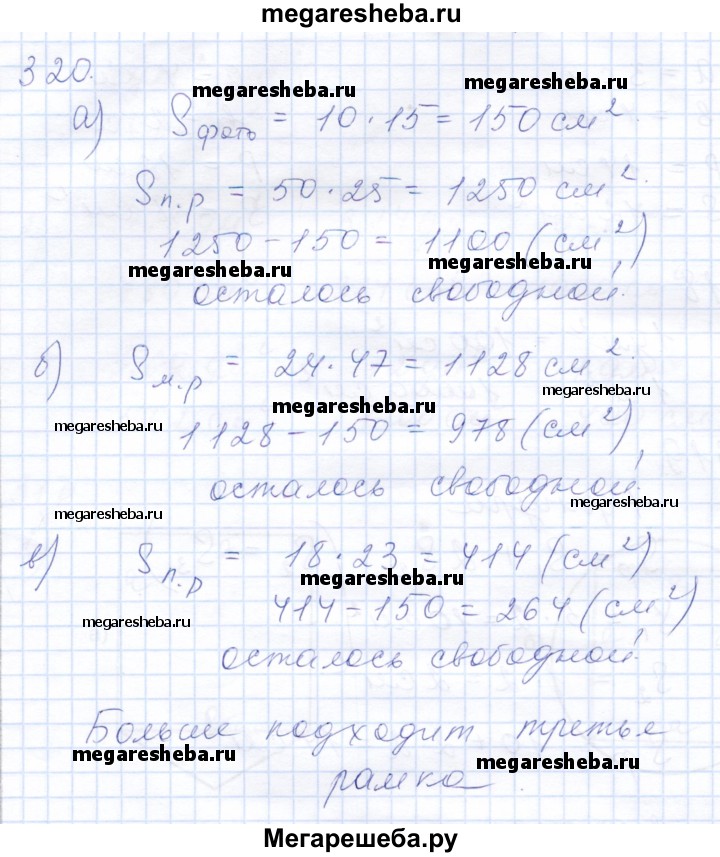 megaresheba.ru
320.
megaresheba.ru megaresheba.ru
а) Sфото = 10 · 15 = 150 см².
Sп.р = 50 · 25 = 1250 см².
1250 - 150 = 1100 (см²),
megaresheba.ru megaresheba.ru
осталось свободной.
б) Sм.р = 24 · 47 = 1128 см².
megaresheba.ru
megaresheba.ru
megaresheba.ru
1128 - 150 = 978 (см²),
осталось свободной.
megaresheba.ru megaresheba.ru
в) Sп.р = 18 · 23 = 414 (см²)
megaresheba.ru
414 - 150 = 264 (см²),
megaresheba.ru
осталось свободной.
Больше подходит третье
megaresheba.ru megaresheba.ru
рамка
Мегарешеба.ру